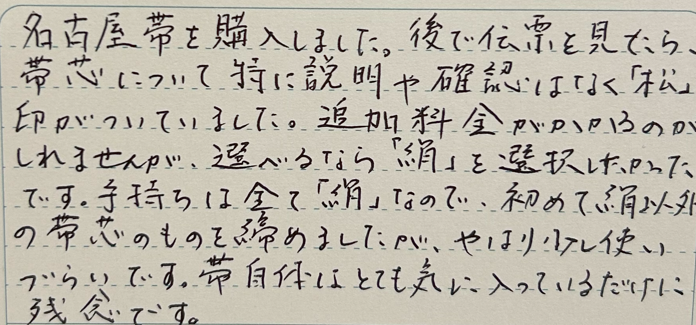 名古屋帯を購入しました。後で伝票を見たら、
帯芯について特に説明や確認はなく「松」
印がついていました。追加料金がかかるのかも
しれませんが、選べるなら「絹」を選択したかった
です。手持ちは全て「絹」なので、初めて絹以外
の帯芯のものを締めましたが、やはり少し使い
づらいです。帯自体はとても気に入っているだけに
残念です。